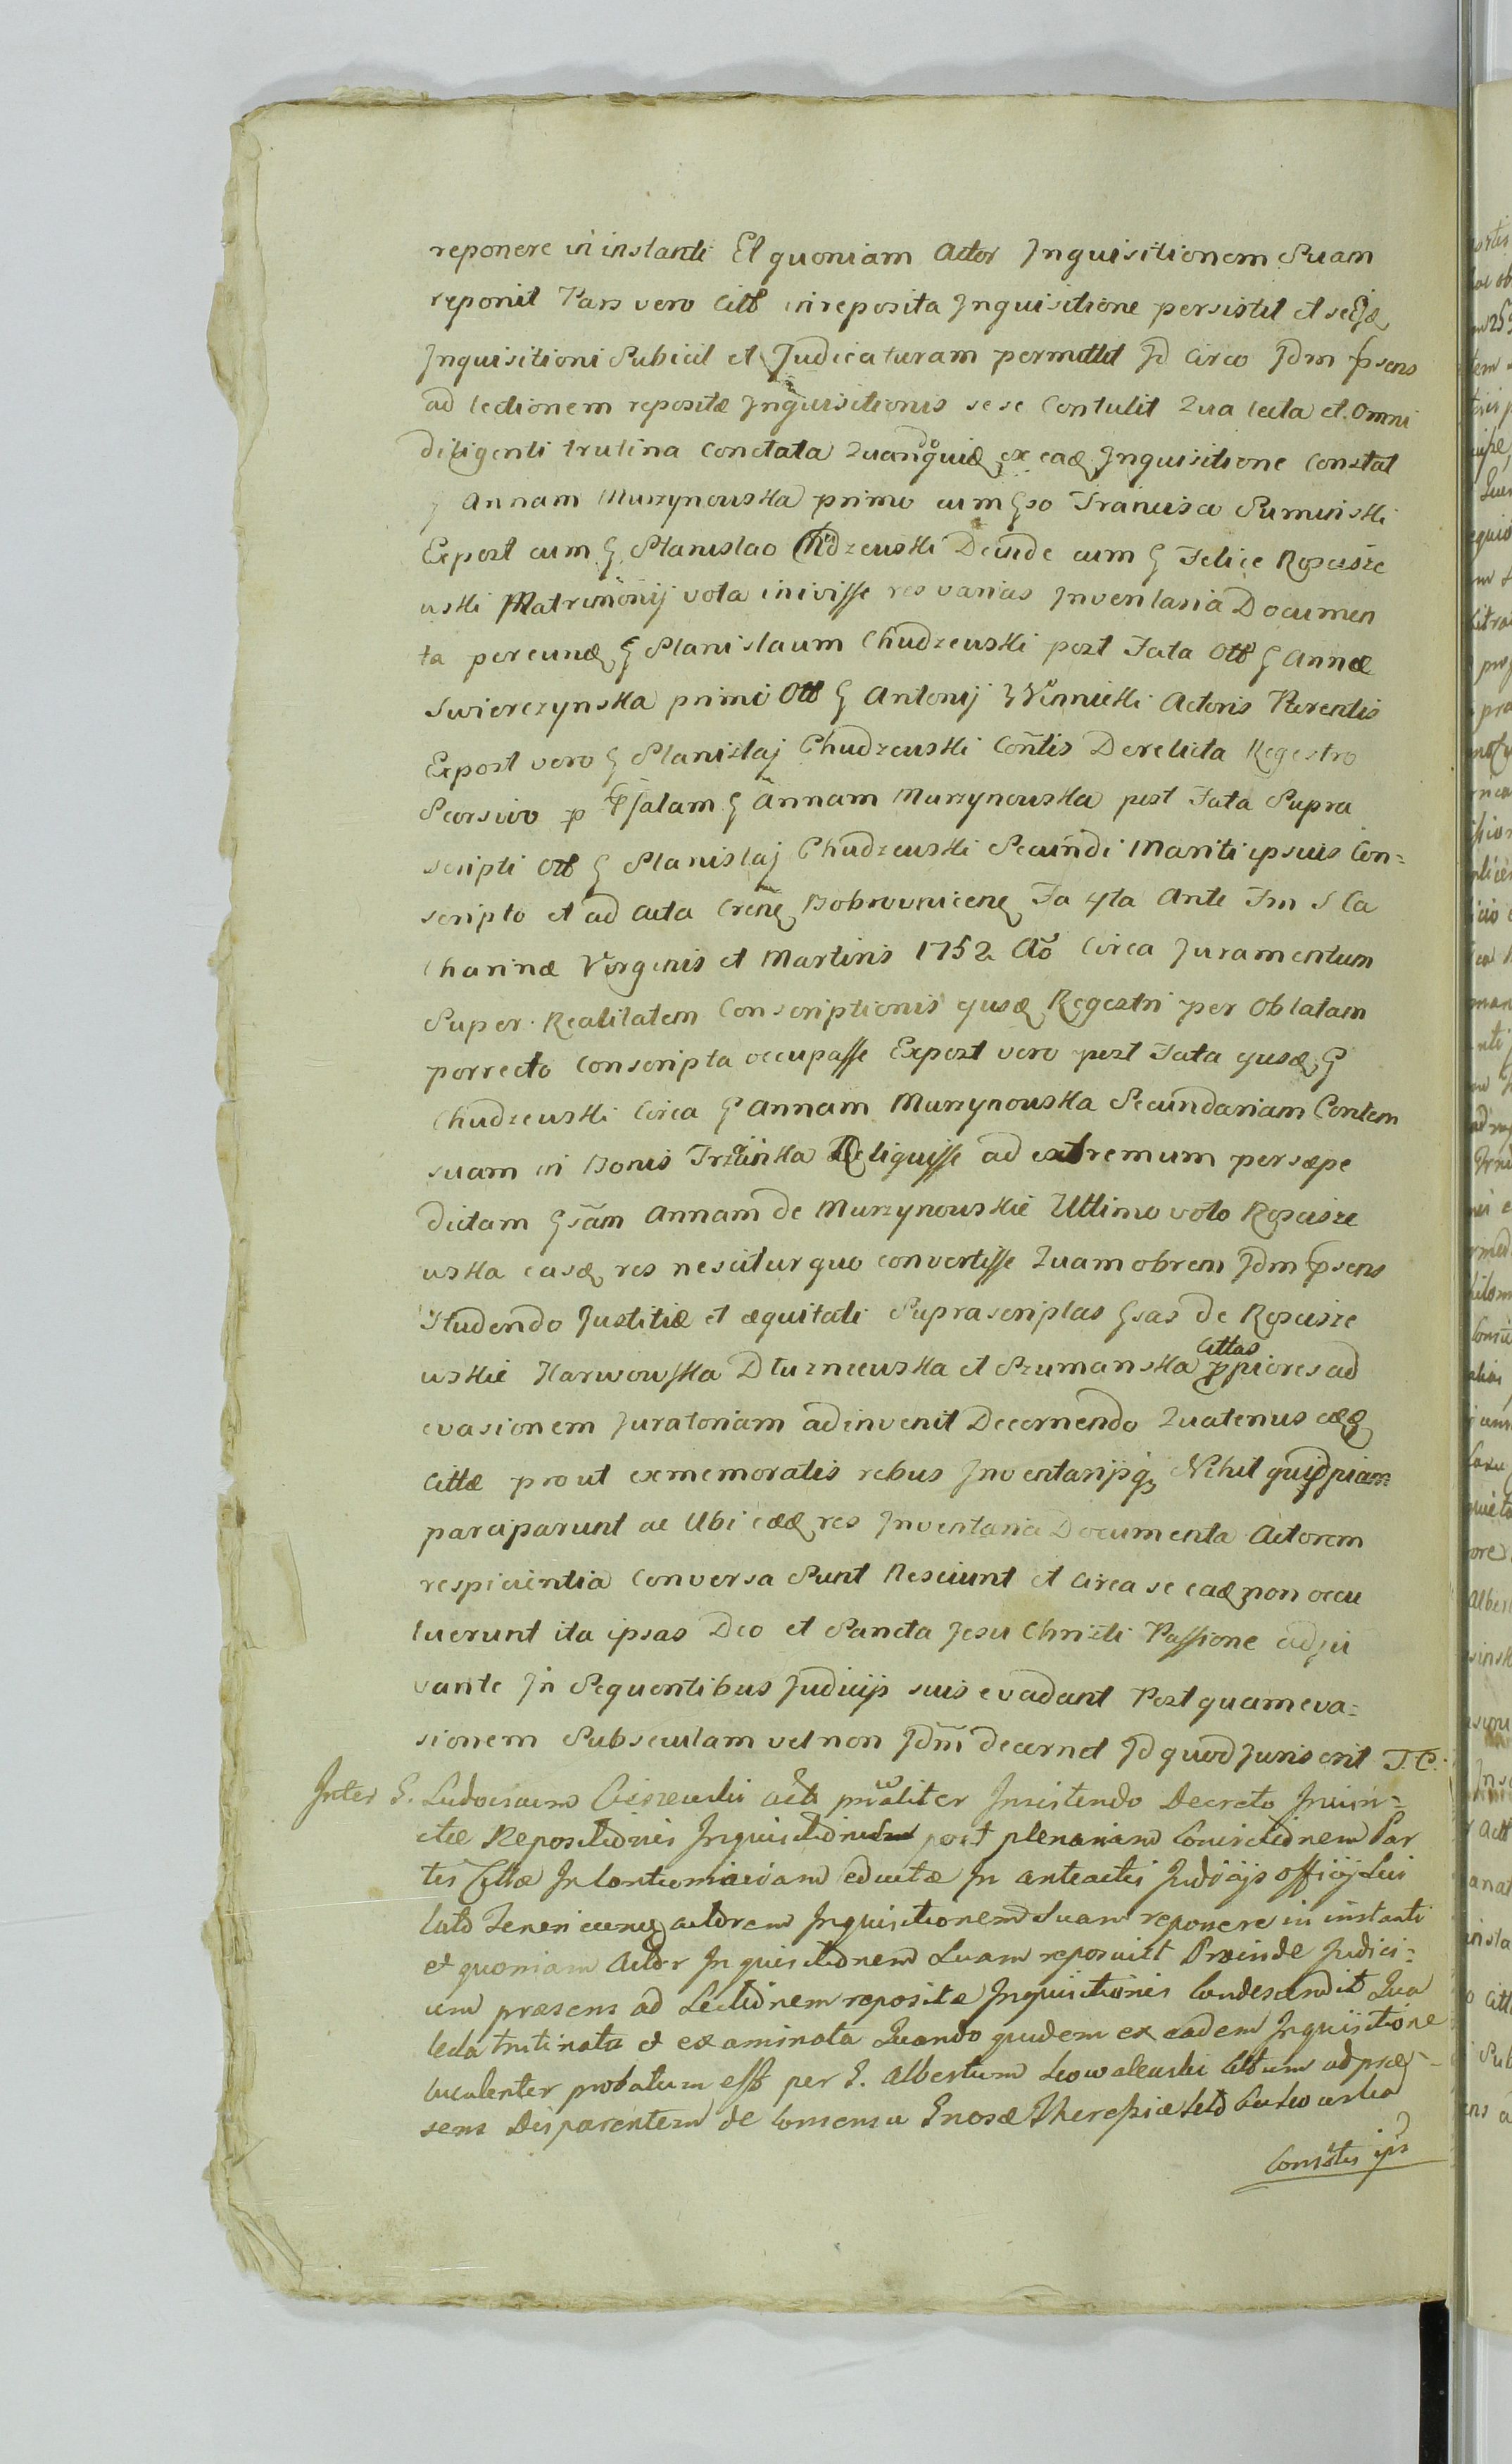 reponere in instanti Et quoniam Actor Inquisitionem Suam
reponit Pars vero Citt in reposita Inquisitione persistit et se
Inquisitioni Subicit et Judicaturam permittit Id circo Jdm psens
ad lectionem repositæ Inquisitionis sese Contulit Qua lecta et Omni
diligenti trutina Conctata Quandoquiđ ex eađ Inquisitione Constat
Annam Murzynouska primo cum Gso Francisco Suminski
Expost cum G Stanislao Chudzeuski Deinde cum G Felice Rosciszе
uski Matrimonij vota inivisse res varias Inventaria Documen
ta per eunđ G Stanislaum Chudzeuski post Fata Ott G Annæ
Swierczynska primi Ott G Antonij Winnicki Actoris Parentis
Expost vero G Stanislaj Chudzeuski Contis Derelicta Regestro
Scorsivo p G Annam Murzynouska post Fata Supra
scripti Ott G Stanislaj Chudzeuski Secundi Mariti ipsius Con=
scripto et ad Acta Bobrounicen Fa 4ta Ante Fm S Ca
tharinæ Virginis et Martiris 1752 Ao Circa Juramentum
Super Realitatem Conscriptionis ejusđ Regestri per Oblatam
porrecto Conscripta occupasse Expost vero post Fata ejusđ G
Chudzeuski Circa G Annam Murzynouska Secundariam Contem
suam in Bonis Trzcinka Reliquisse ad extremum persæpe
dictam Gsam Annam de Murzynouskie Ultimo voto Roscisze
uska easđ res nescitur quo convertisse Quam obrem Jdm psens
Studendo Justitiæ et æquitati Suprascriptas Gsas de Roscisze
uskie Karwowska Dłuzneeuska et Szumanska Cittas ppiores ad
evasionem Juratoriam adinvenit Decernendo Quatenus eæđ
Cittæ prout ex memoratis rebus Inventarijq Nihil quidpiam
parciparunt ac Ubi eæđ res Inventaria Documenta Actorem
respicientia Conversa Sunt Nesciunt et Circa se eađ non occu
luerunt ita ipsas Deo et Sancta Jesu Christi Passione adju
vante In Sequentibus Judicijs suis evadant Post quam eva=
sionem Subsecutam vel non Jdm decernet Id quod Juris erit T. C.
Inter G. Ludovicum Ciszeuski act prwaliter Insistendo Decreto Injun=
ctæ Repositionis Inquisitionum post plenariam Convictionem Par
tis Cittæ In Contumaciam eductæ In anteactis Judicijs officij Sui
lato Teneri eunđ actorem Inquisitionem Suam reponere in instanti
et quoniam Actor Inquisitionem Suam reposuit Proinde Judici=
um præsens ad Lectionem repositæ Inquisitionis Condescendit Qua
lecta trutinata et examinata Quando quidem ex eadem Inquisitione
luculenter probatum est per G. Albertum Leowaleuski Cittum ad præ=
sens Disparentem de Consensu Gnosæ Theresiæ
Consstis ips